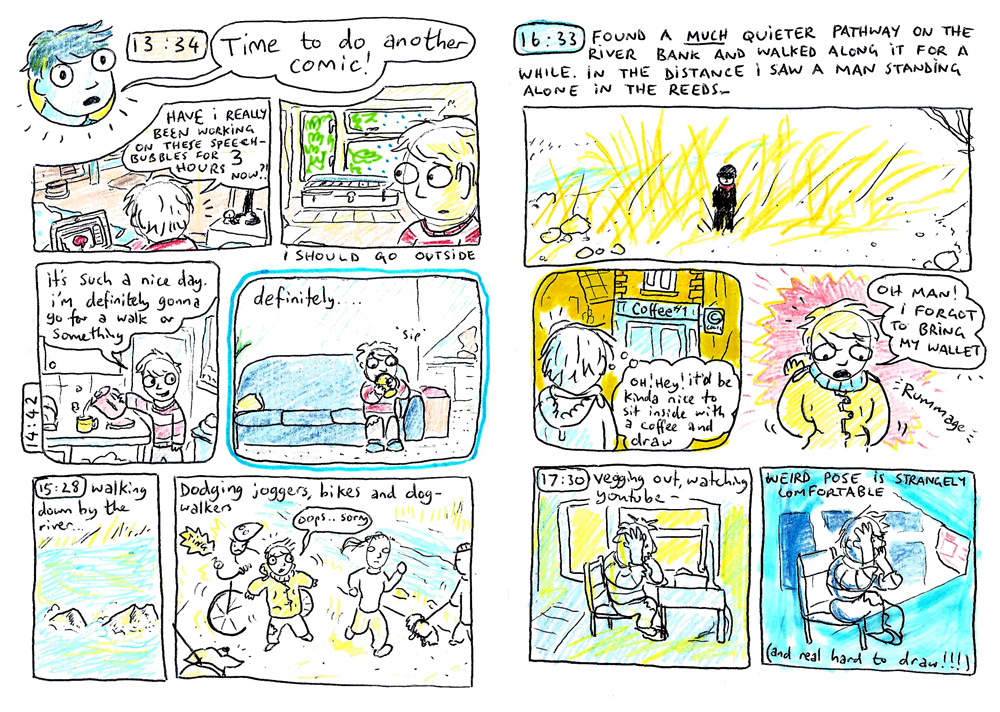 13:34
Time to do another
comic!
HAVE i REALLY
BEEN WORKING
ON THESE SPEECH-
BUBBLES FOR 3
HOURS NOW?!
I SHOULD GO OUTSIDE
it's such a nice day.
i'm definitely gonna
go for a walk or
something
14:42
definitely....
'sip'
15:28 walking
down by the
river...
Dodging joggers, bikes and dog-
walkers
oops.. sorry
Ting
16:33 FOUND A MUCH QUIETER PATHWAY ON THE
RIVER BANK AND WALKED ALONG IT FOR A
WHILE. IN THE DISTANCE I SAW A MAN STANDING
ALONE IN THE REEDS...
Coffee #1
OH! Hey! it'd be
kinda nice to
sit inside with
a coffee and
draw
OH MAN!
I FORGOT
TO BRING
MY WALLET
Rummage
17:30 vegging out, watching
youtube -
WEIRD POSE IS STRANGELY
COMFORTABLE
(and real hard to draw!!!)